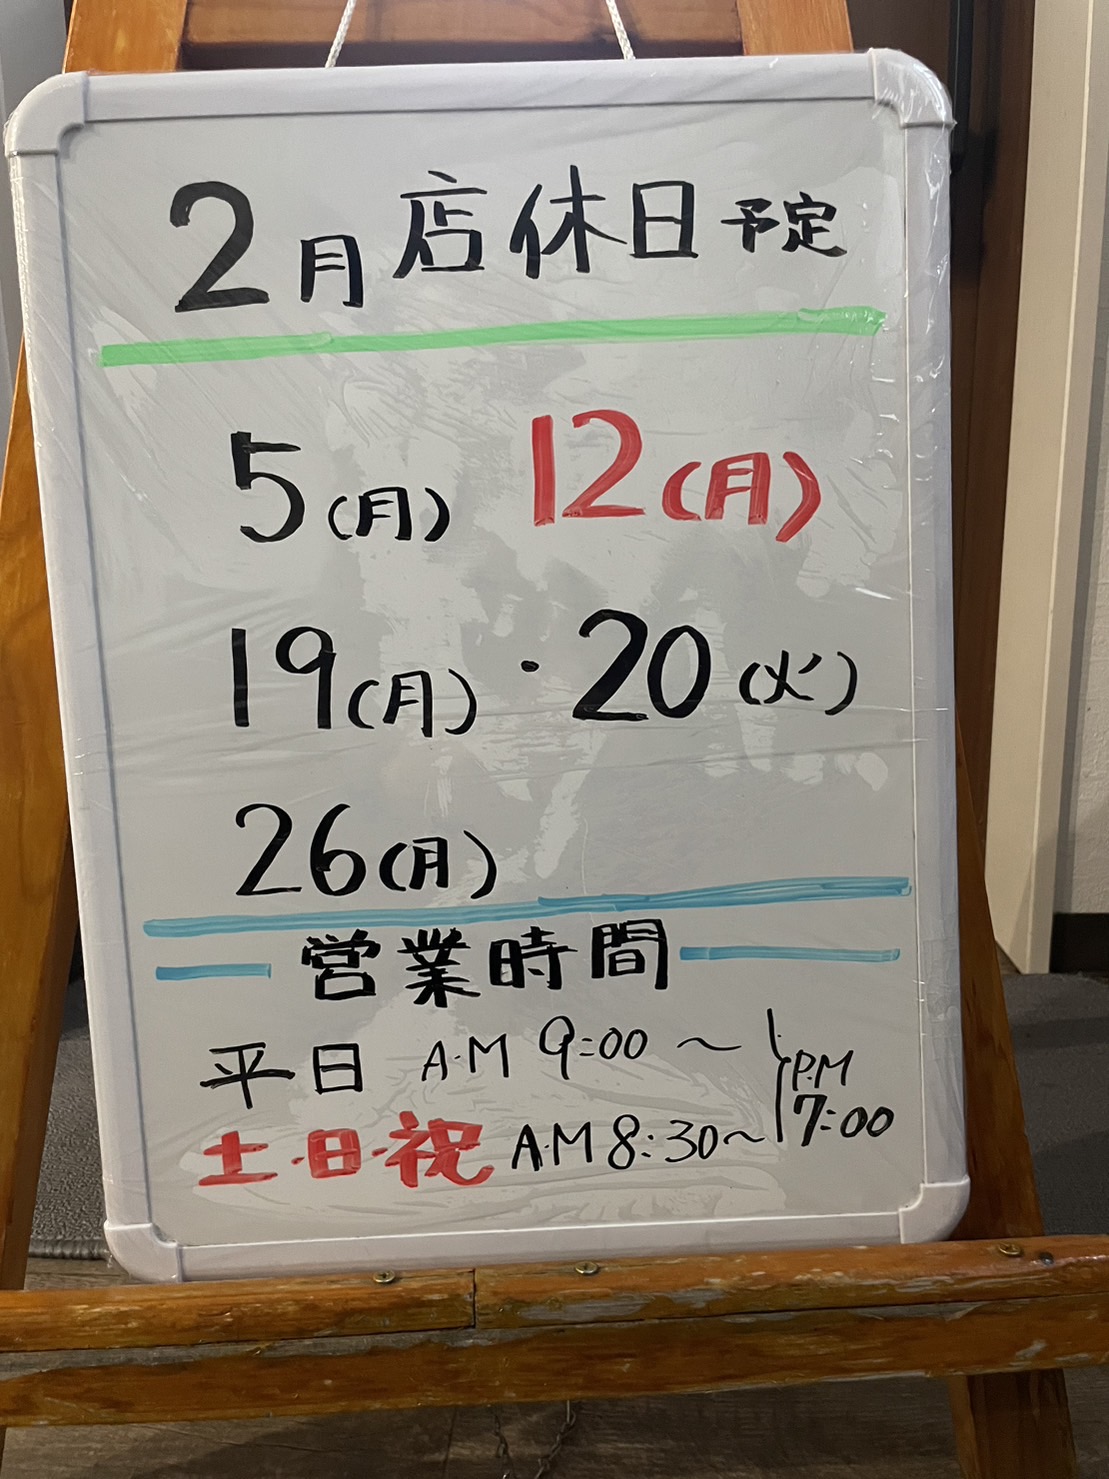 2月店休日予定
5(月) 12(月)
19(月)・20(火)
26(月)
営業時間
平日 A・M 9:00 〜 P.M
土・日・祝 A・M 8:30〜 7:00